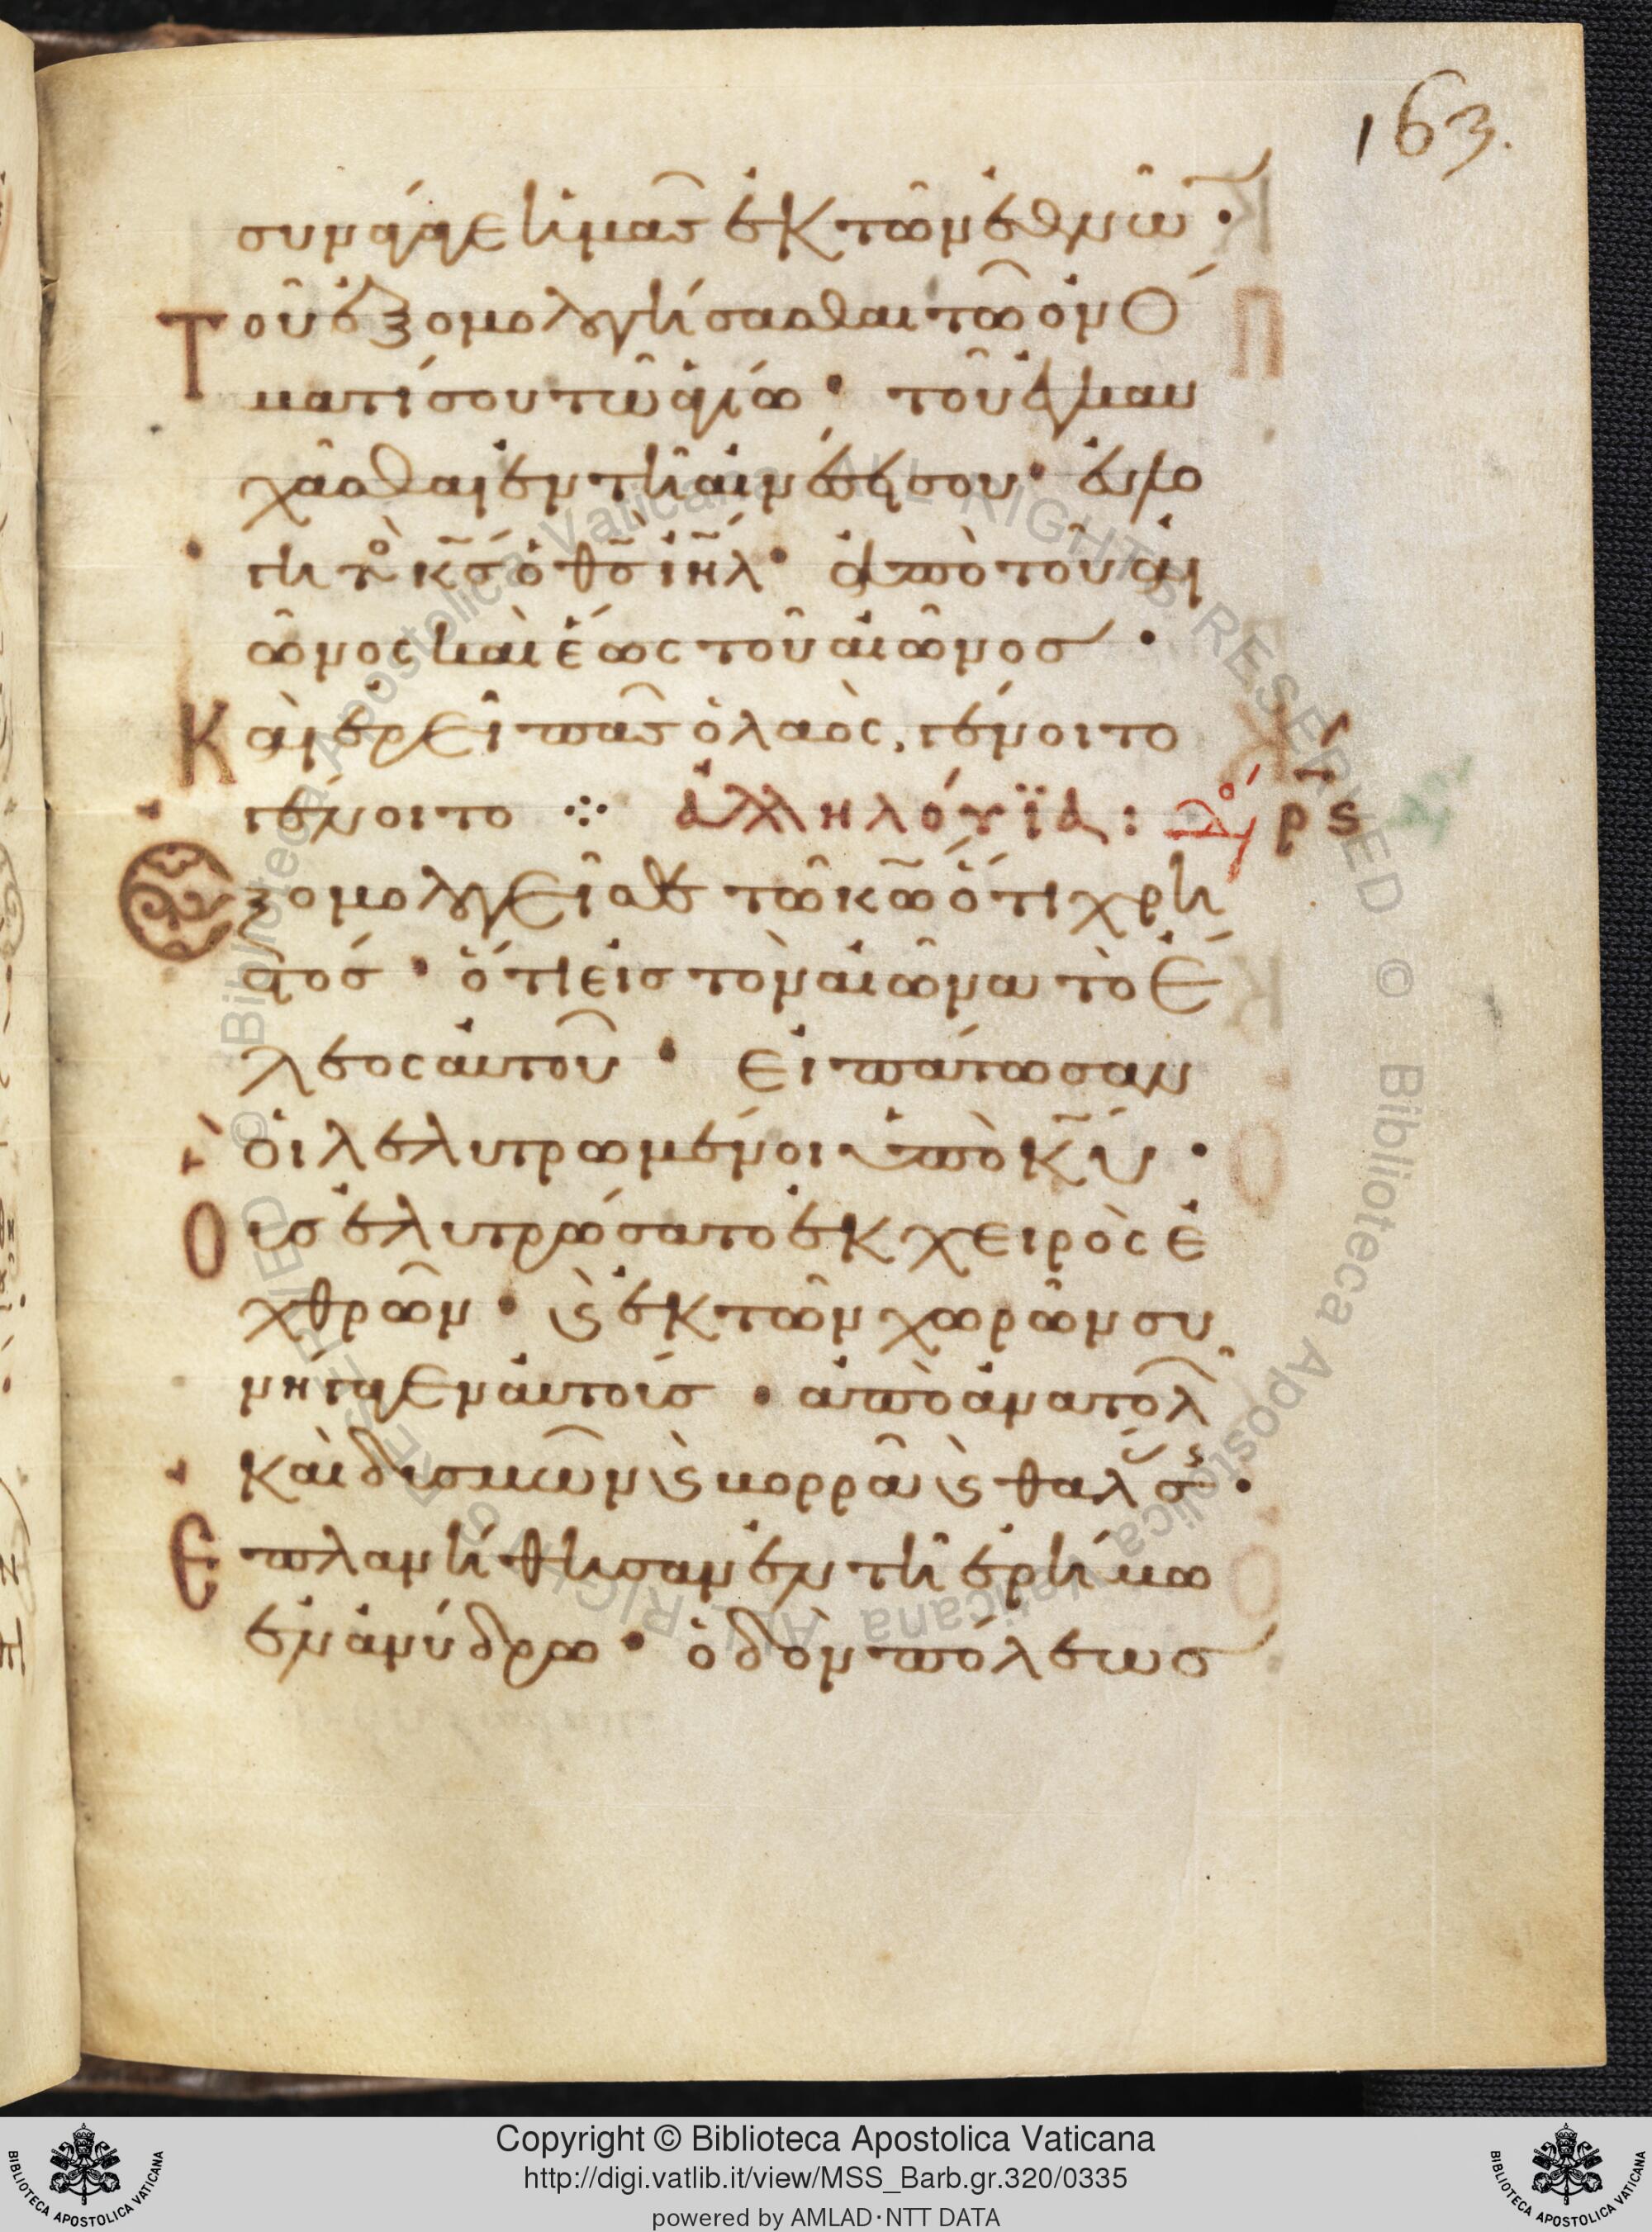 163.
συνάγαγε ἡμᾶς ἐκ τῶν ἐθνῶ ·
Τοῦ ἐξομολογήσασθαι τῶ ὀνό
ματί σου τῶ ἁγίω · τοῦ ἐγκαυ
χᾶσθαι ἐν τῆ αἰνέσει σου · εὐλο
γητὸ κ̅ς̅ ὁ θ̅ς̅ ἰη̅λ · ἀπὸ τοῦ αἰ
ῶνος καὶ ἕως τοῦ αἰῶνος ·
Καὶ ἐρεῖ πᾶς ὁ λαὸς, γένοιτο
γένοιτο ⁘ ἀλληλούϊα : ρς
Ἐξομολογεῖσθε τῶ κ̅ω̅ ὅτι χρη
στός · ὅτι εἰς τὸν αἰῶνα τὸ ἔ
λεος αὐτοῦ · εἰπάτωσαν
οἱ λελυτρωμένοι ὑπὸ κ̅υ̅ ·
Οὓς ἐλυτρώσατο ἐκ χειρὸς ἐ
χθρῶν · ϗ ἐκ τῶν χωρῶν συ
νήγαγεν αὐτοίς · ἀπὸ ἀνατολ
καὶ δυσμῶν ϗ βορρᾶ ϗ θαλσς ·
Ἐπλανήθησαν ἐν τῆ ἐρήμω
ἐν ἀνύδρω · ὁδὸν πόλεως
Copyright © Biblioteca Apostolica Vaticana
http://digi.vatlib.it/view/MSS_Barb.gr.320/0335
powered by AMLAD·NTT DATA